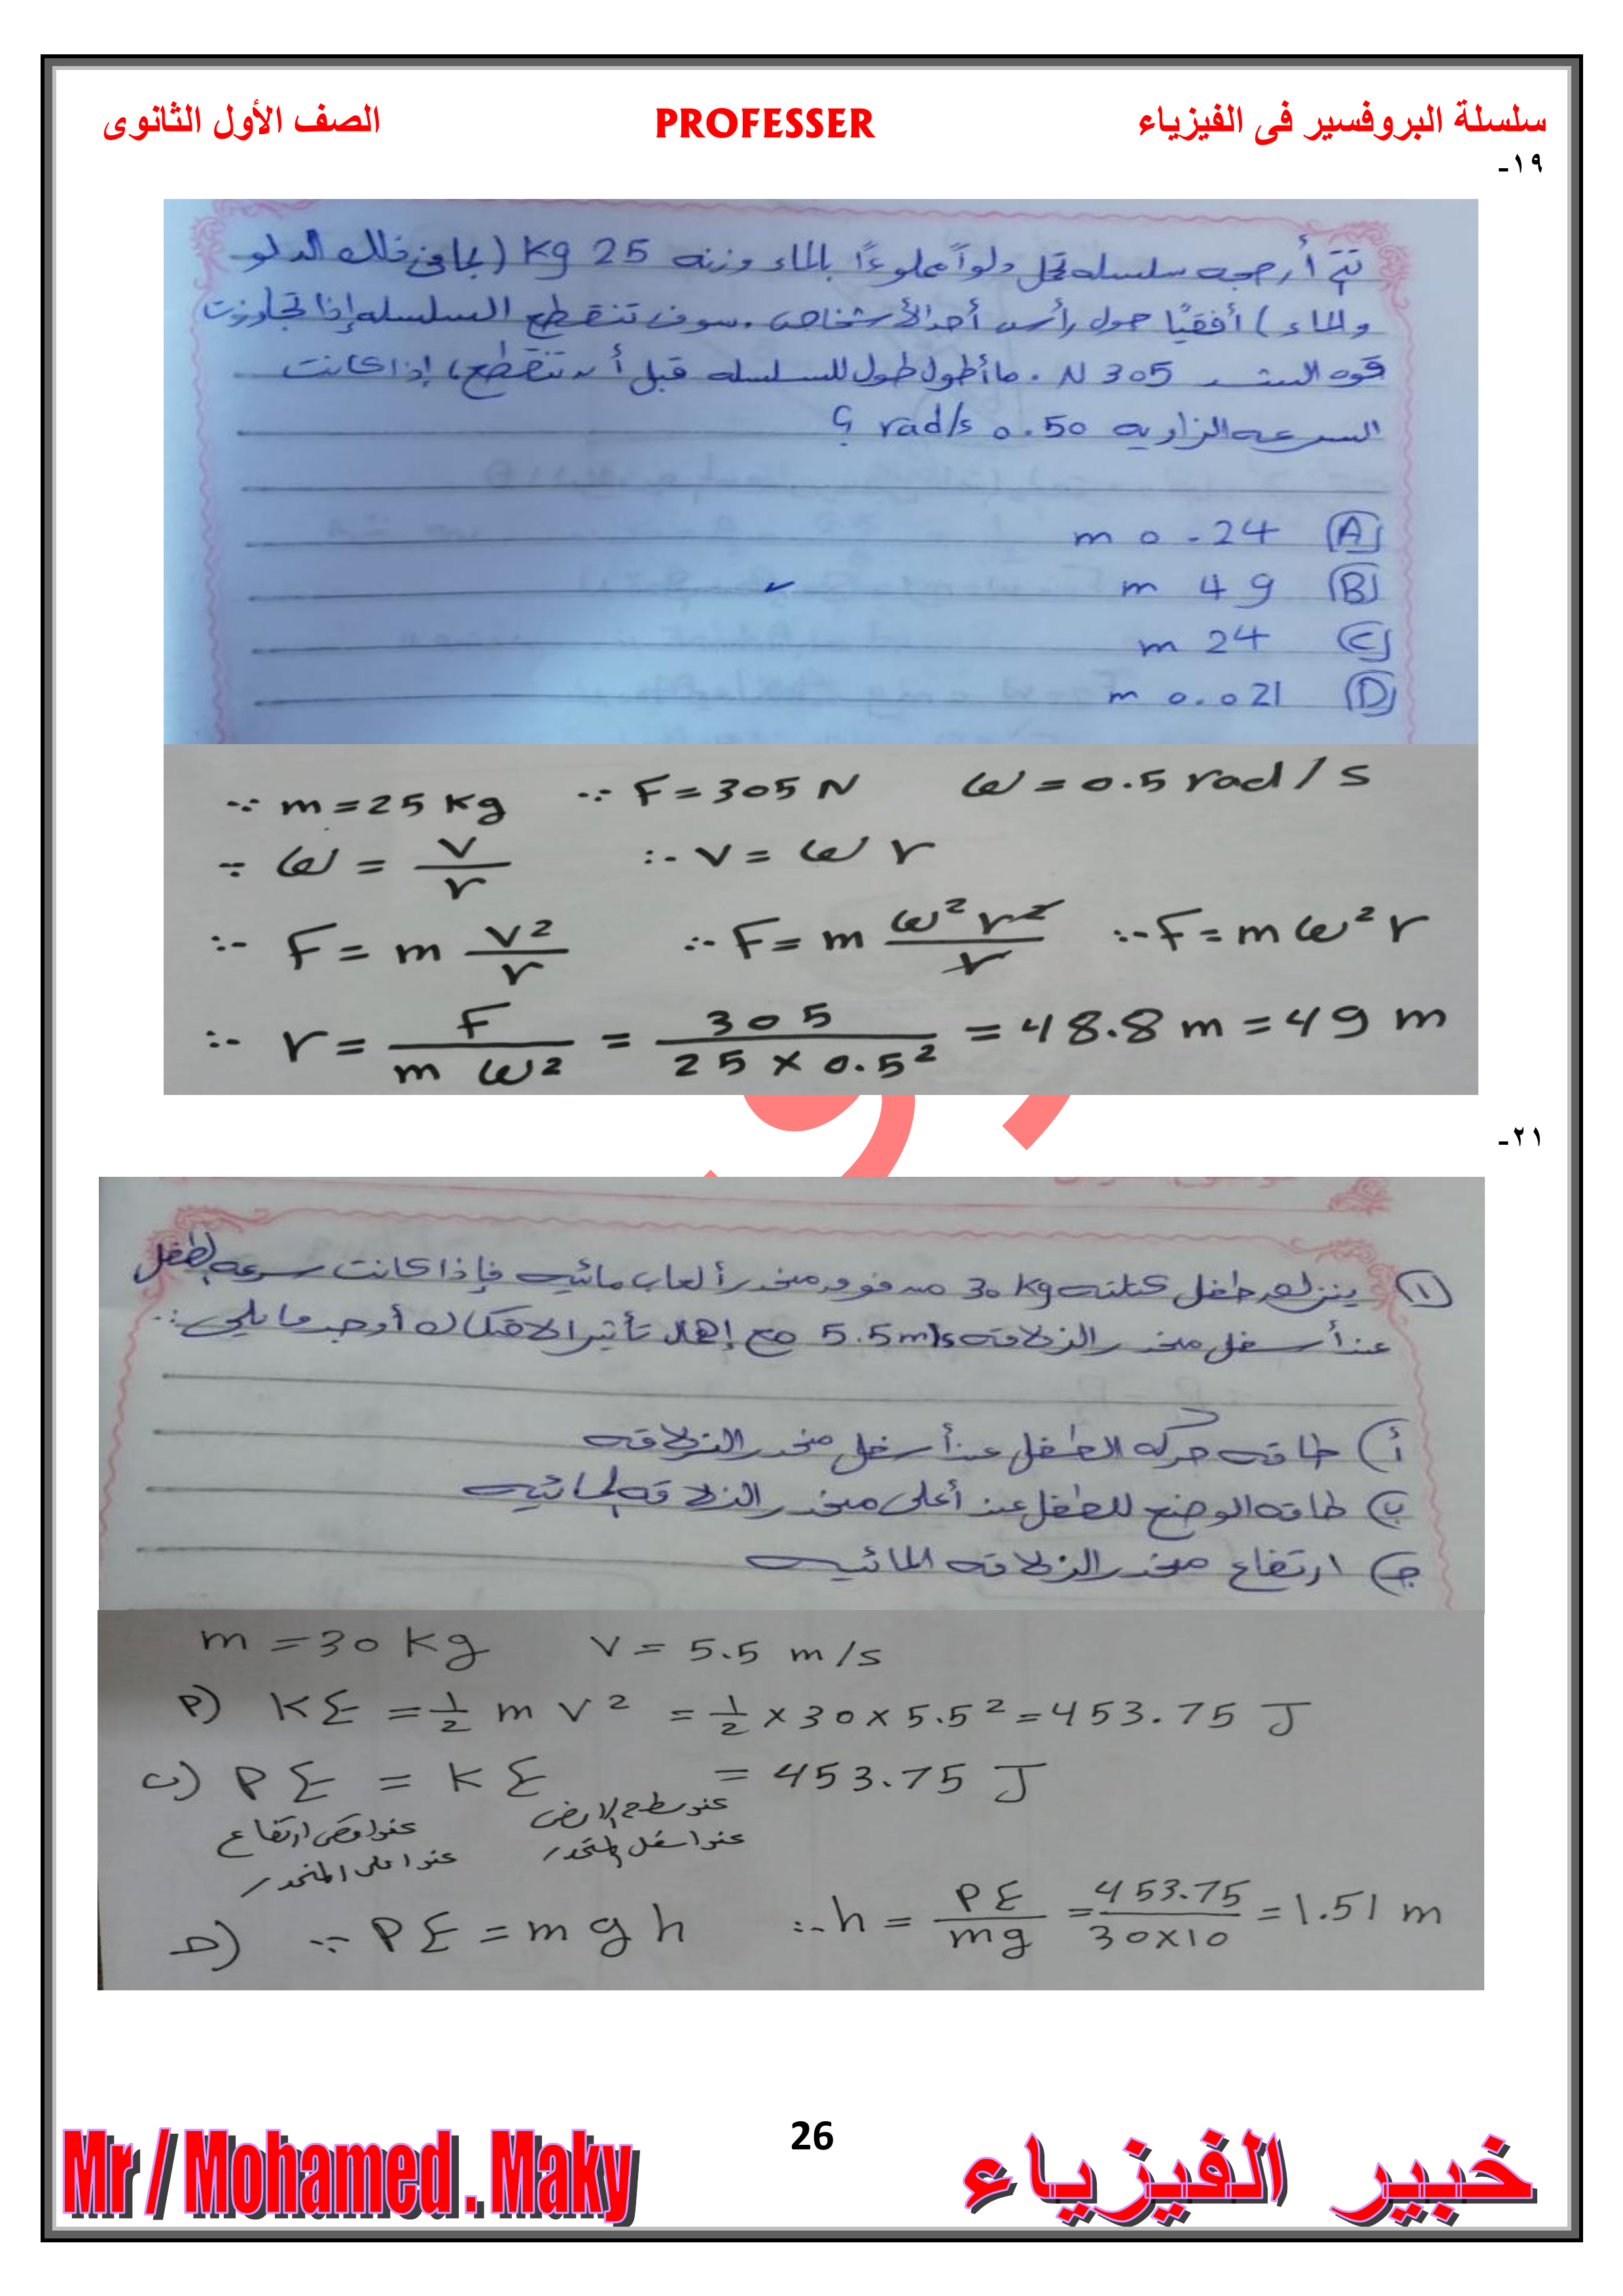 سلسلة البروفسير فى الفيزياء PROFESSER الصف الأول الثانوى
١٩-
تتم أرجحه سلسله تحمل دلواً مملوءًا بالماء وزنه 25 Kg (بما فى ذلك الدلو
والماء) أفقيًا حول رأس أحد الأشخاص . سوف تنقطع السلسله إذا تجاوزت
قوه الشد 305 N . ما أطول طول للسلسله قبل أن تنقطع، إذا كانت
السرعه الزاويه 0.50 rad/s ؟
(A) 0.24 m
(B) 49 m ✓
(C) 24 m
(D) 0.021 m
∵ m = 25 Kg ∵ F = 305 N ω = 0.5 rad / s
∵ ω = v/r ∴ v = ω r
∴ F = m v²/r ∴ F = m ω² r²/r ∴ F = m ω² r
∴ r = F / m ω² = 305 / 25 × 0.5² = 48.8 m = 49 m
٢١-
(١) ينزلق طفل كتلته 30 Kg من فوق منحدر ألعاب مائيه فإذا كانت سرعه الطفل
عند أسفل منحدر الزلاقه 5.5 m/s مع إهمال تأثير الاحتكاك أوجد ما يلي :
أ) طاقه حركه الطفل عند أسفل منحدر الزلاقه
ب) طاقه الوضع للطفل عند أعلى منحدر الزلاقه المائيه
ج) ارتفاع منحدر الزلاقه المائيه
m = 30 Kg v = 5.5 m/s
P) KE = 1/2 m v² = 1/2 × 30 × 5.5² = 453.75 J
ب) PE = KE = 453.75 J
عند اقصى ارتفاع عند سطح الارض
عند اعلى المنحدر عند اسفل المنحدر
ج) ∵ PE = m g h ∴ h = PE/mg = 453.75/30×10 = 1.51 m
Mr / Mohamed . Maky 26 خبير الفيزياء